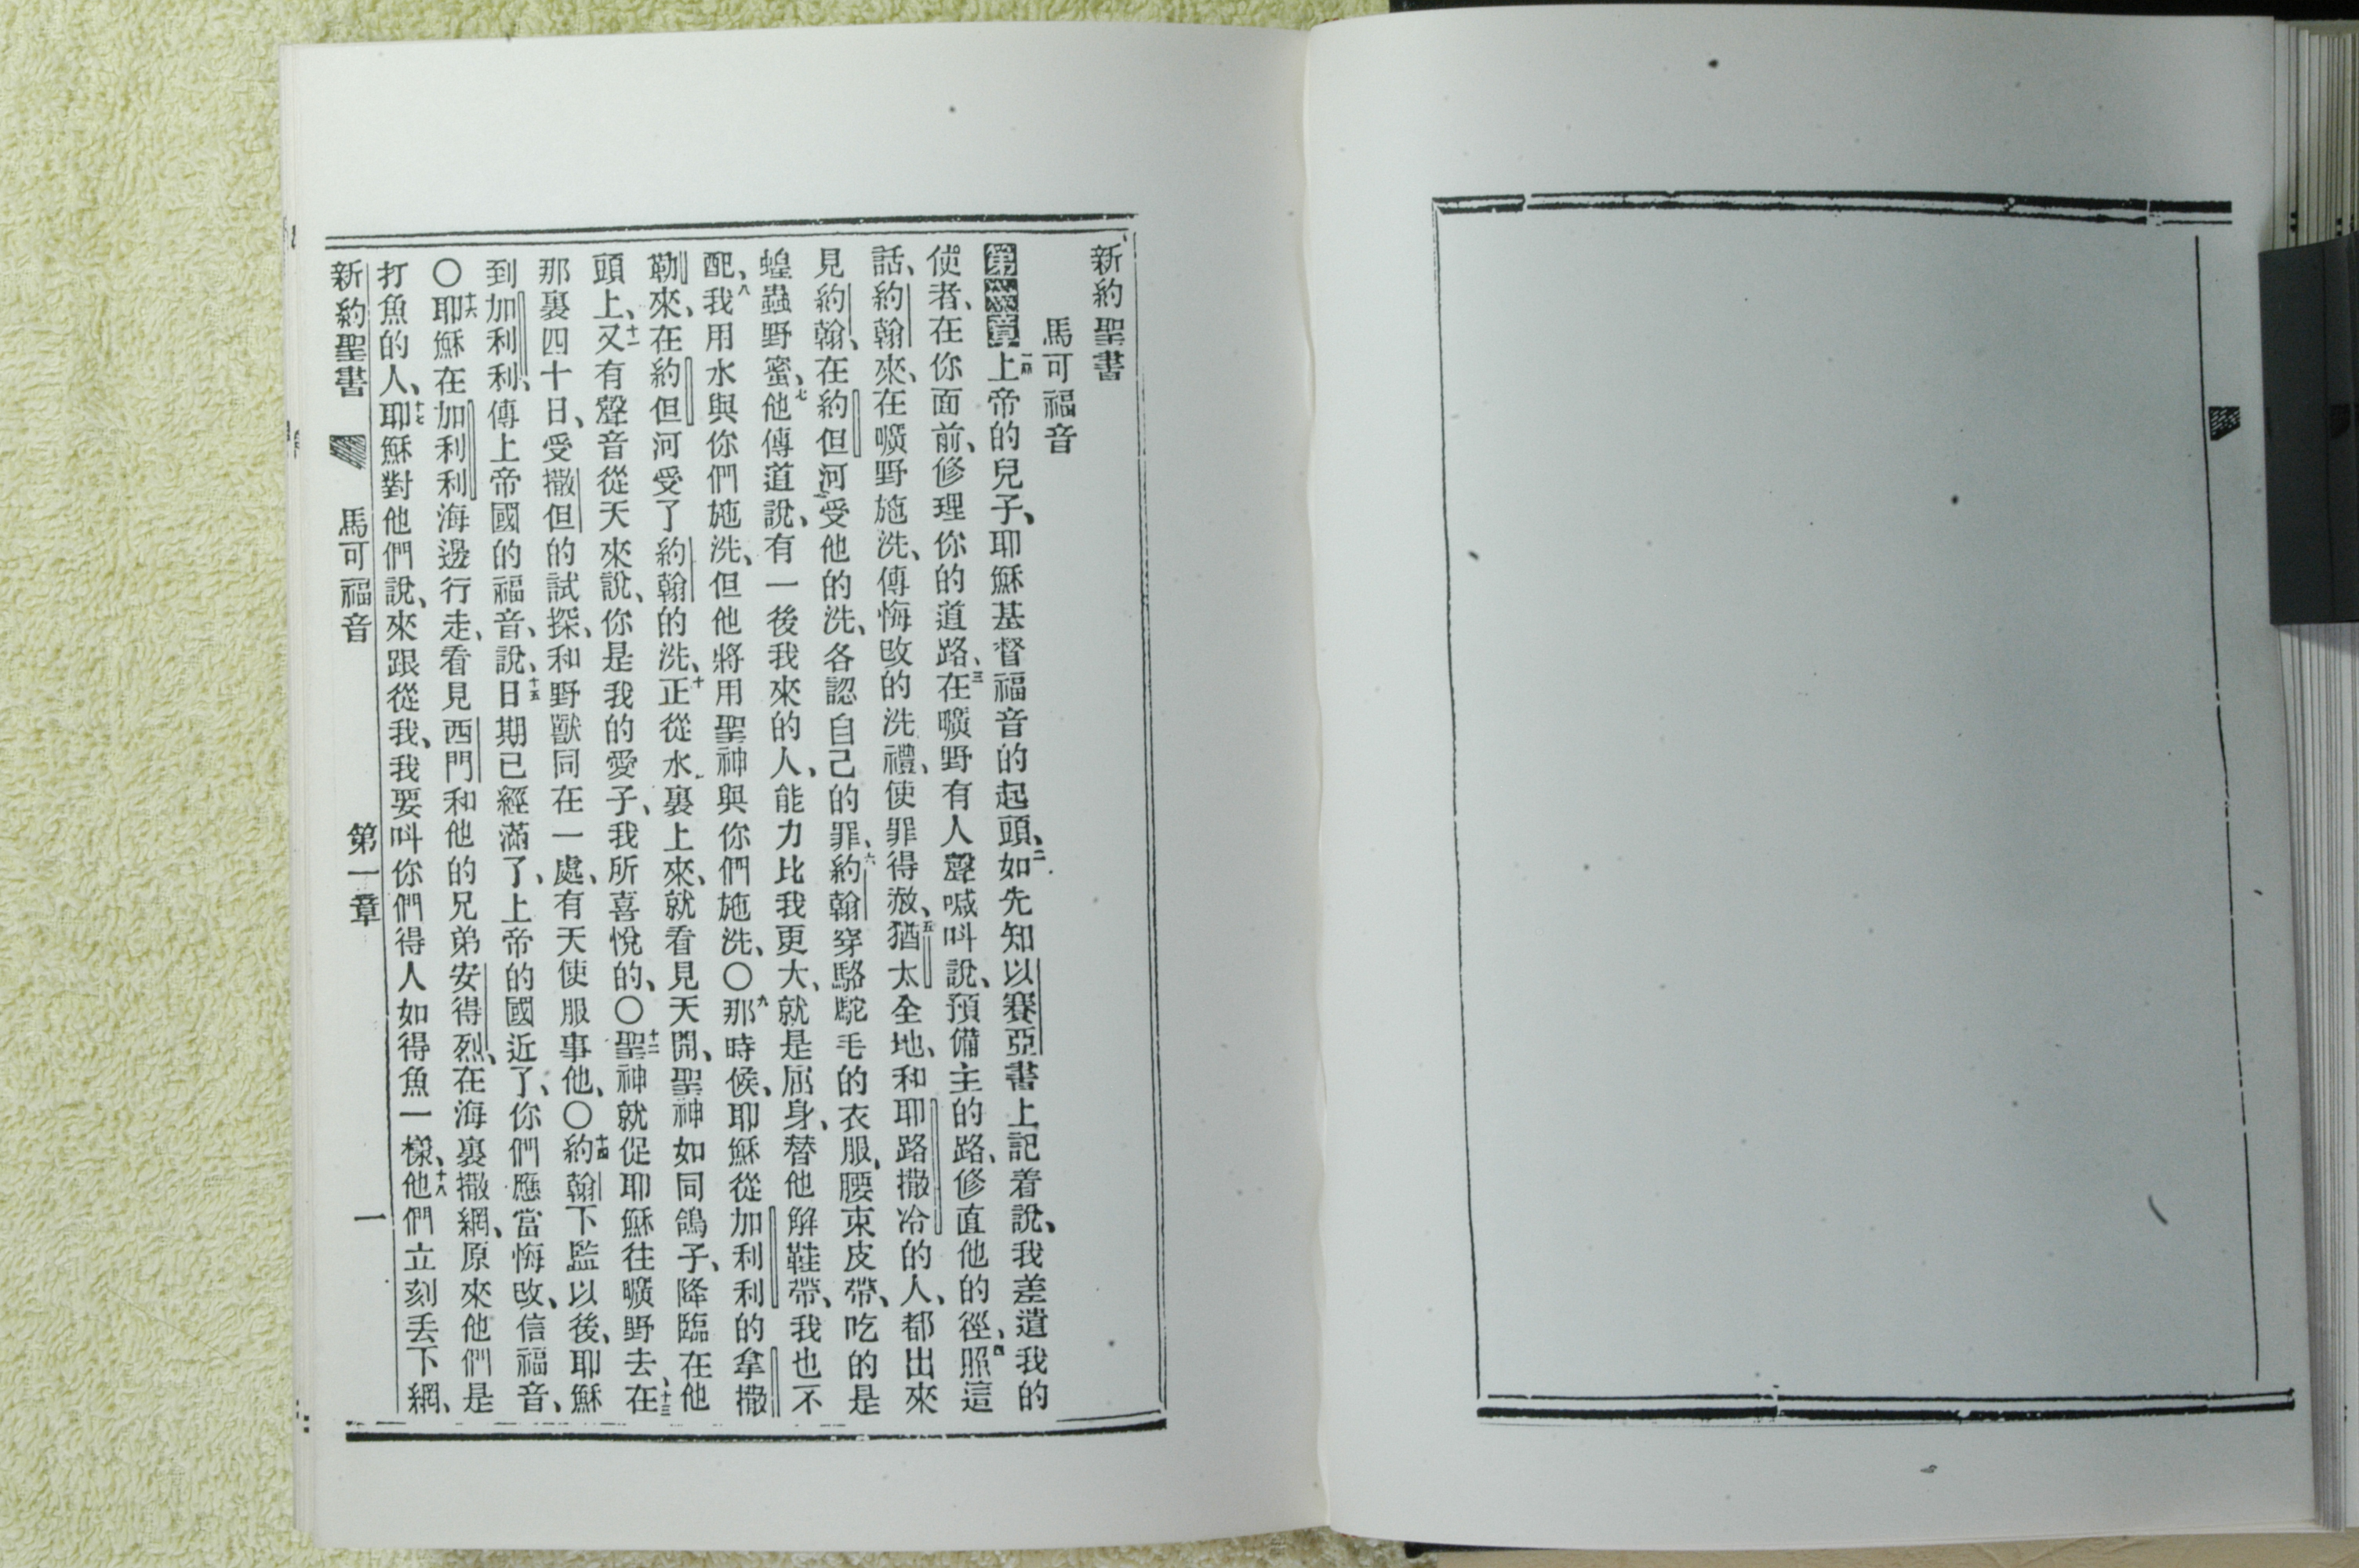 新約聖書
馬可福音
第一章上帝的兒子、耶穌基督福音的起頭、二如先知以賽亞書上記着說、我差遣我的
使者、在你面前、修理你的道路、三在曠野有人聲喊叫說、預備主的路、修直他的徑、四照這
話、約翰來、在曠野施洗、傳悔改的洗禮、使罪得赦、五猶太全地、和耶路撒冷的人、都出來
見約翰、在約但河受他的洗、各認自己的罪、六約翰穿駱駝毛的衣服、腰束皮帶、吃的是
蝗蟲野蜜、七他傳道說、有一後我來的人、能力比我更大、就是屈身、替他解鞋帶、我也不
配、八我用水與你們施洗、但他將用聖神與你們施洗、〇九那時候、耶穌從加利利的拿撒
勒來、在約但河受了約翰的洗、十正從水裏上來、就看見天開、聖神如同鴿子、降臨在他
頭上、十一又有聲音從天來說、你是我的愛子、我所喜悅的、〇十二聖神就促耶穌往曠野去、十三在
那裏四十日、受撒但的試探、和野獸同在一處、有天使服事他、〇十四約翰下監以後、耶穌
到加利利、傳上帝國的福音、說、十五日期已經滿了、上帝的國近了、你們應當悔改、信福音、
〇十六耶穌在加利利海邊行走、看見西門和他的兄弟安得烈、在海裏撒網、原來他們是
打魚的人、十七耶穌對他們說、來跟從我、我要叫你們得人如得魚一樣、十八他們立刻丢下網、
新約聖書 馬可福音 第一章 一